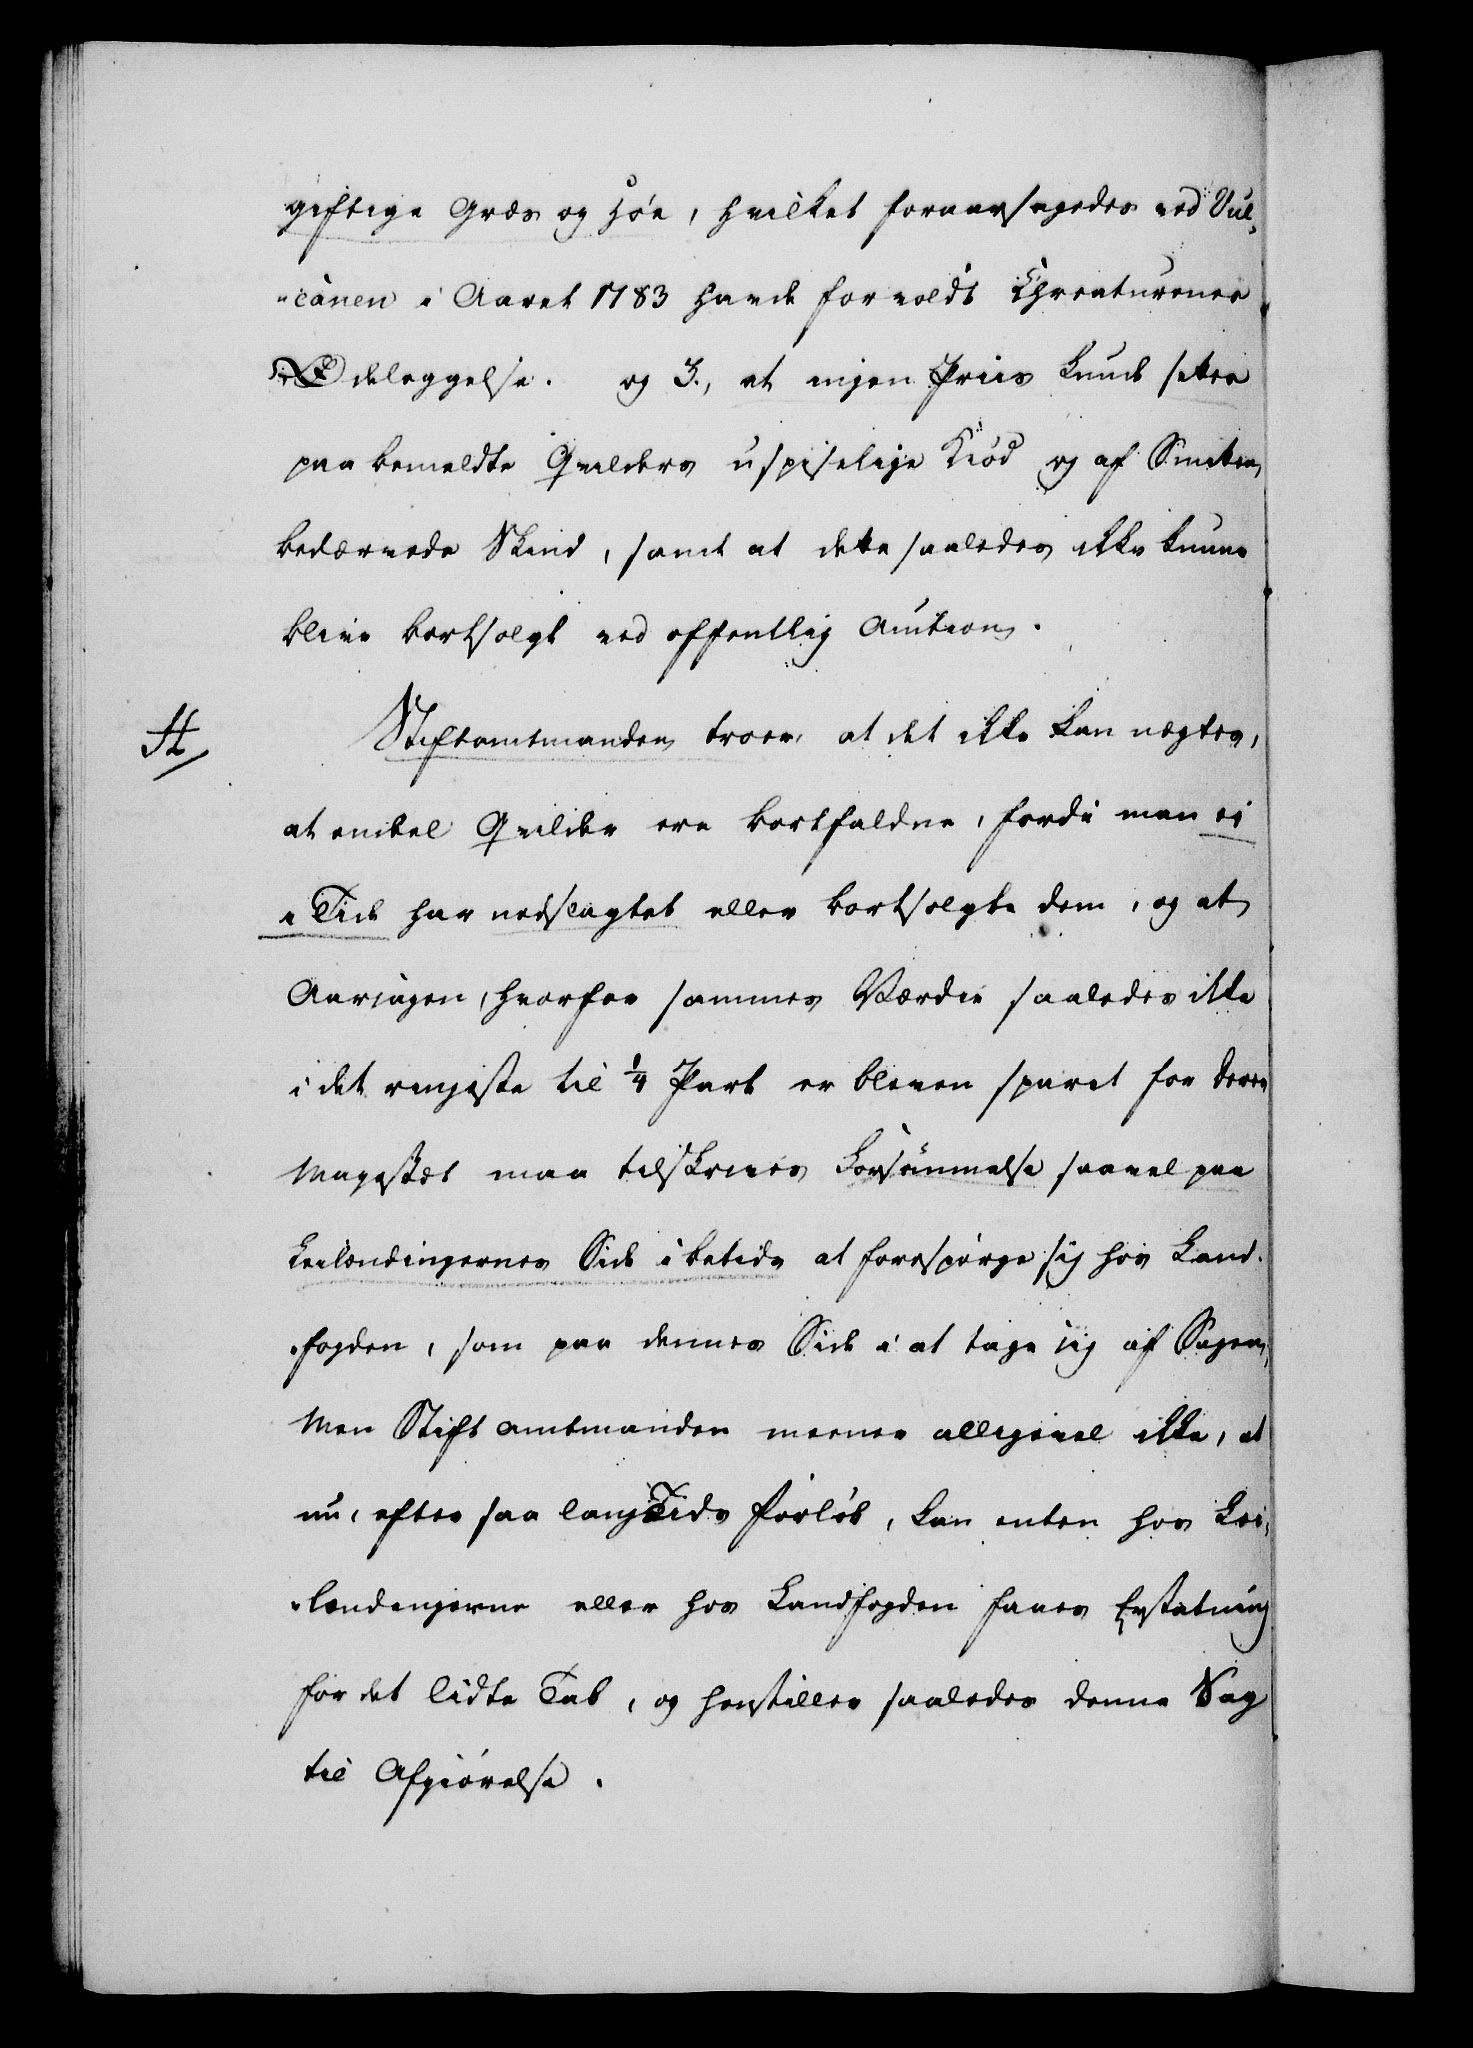 giftige Græs og Høe, hvilket foraarsagedes ved Vul-
canen i Aaret 1783 havde forvoldt Chreaturenes
Ødeleggelse. og 3., at ingen Priis kunde settes
paa bemeldte Qvilders uspiselige Kiød og af Smitten
bedærvede Skind, samt at dette saaledes ikke kunne
blive bortsolgt ved offentlig Auction.
H Stiftamtmanden troer, at det ikke kan nægtes,
at endel Qvilder ere bortfaldne, fordi man ei
i Tide har nedslagtet eller bortsolgte dem, og at
Aarsagen, hvorfor sammes Værdie saaledes ikke
i det ringeste til 1/4 Part er bleven sparet for Deres
Majestæt maa tilskrives Forsømmelse saavel paa
Leilændingernes Side i betids at forespørge sig hos Land-
fogden, som paa dennes Side i at tage sig af Sagen,
Men Stiftamtmanden meener alligevel ikke, at
nu, efter saa lang Tids Forløb, kan enten hos Lei-
lændingerne eller hos Landfogden faaes Erstatning
for det lidte Tab, og henstiller saaledes denne Sag
til Afgiørelse.